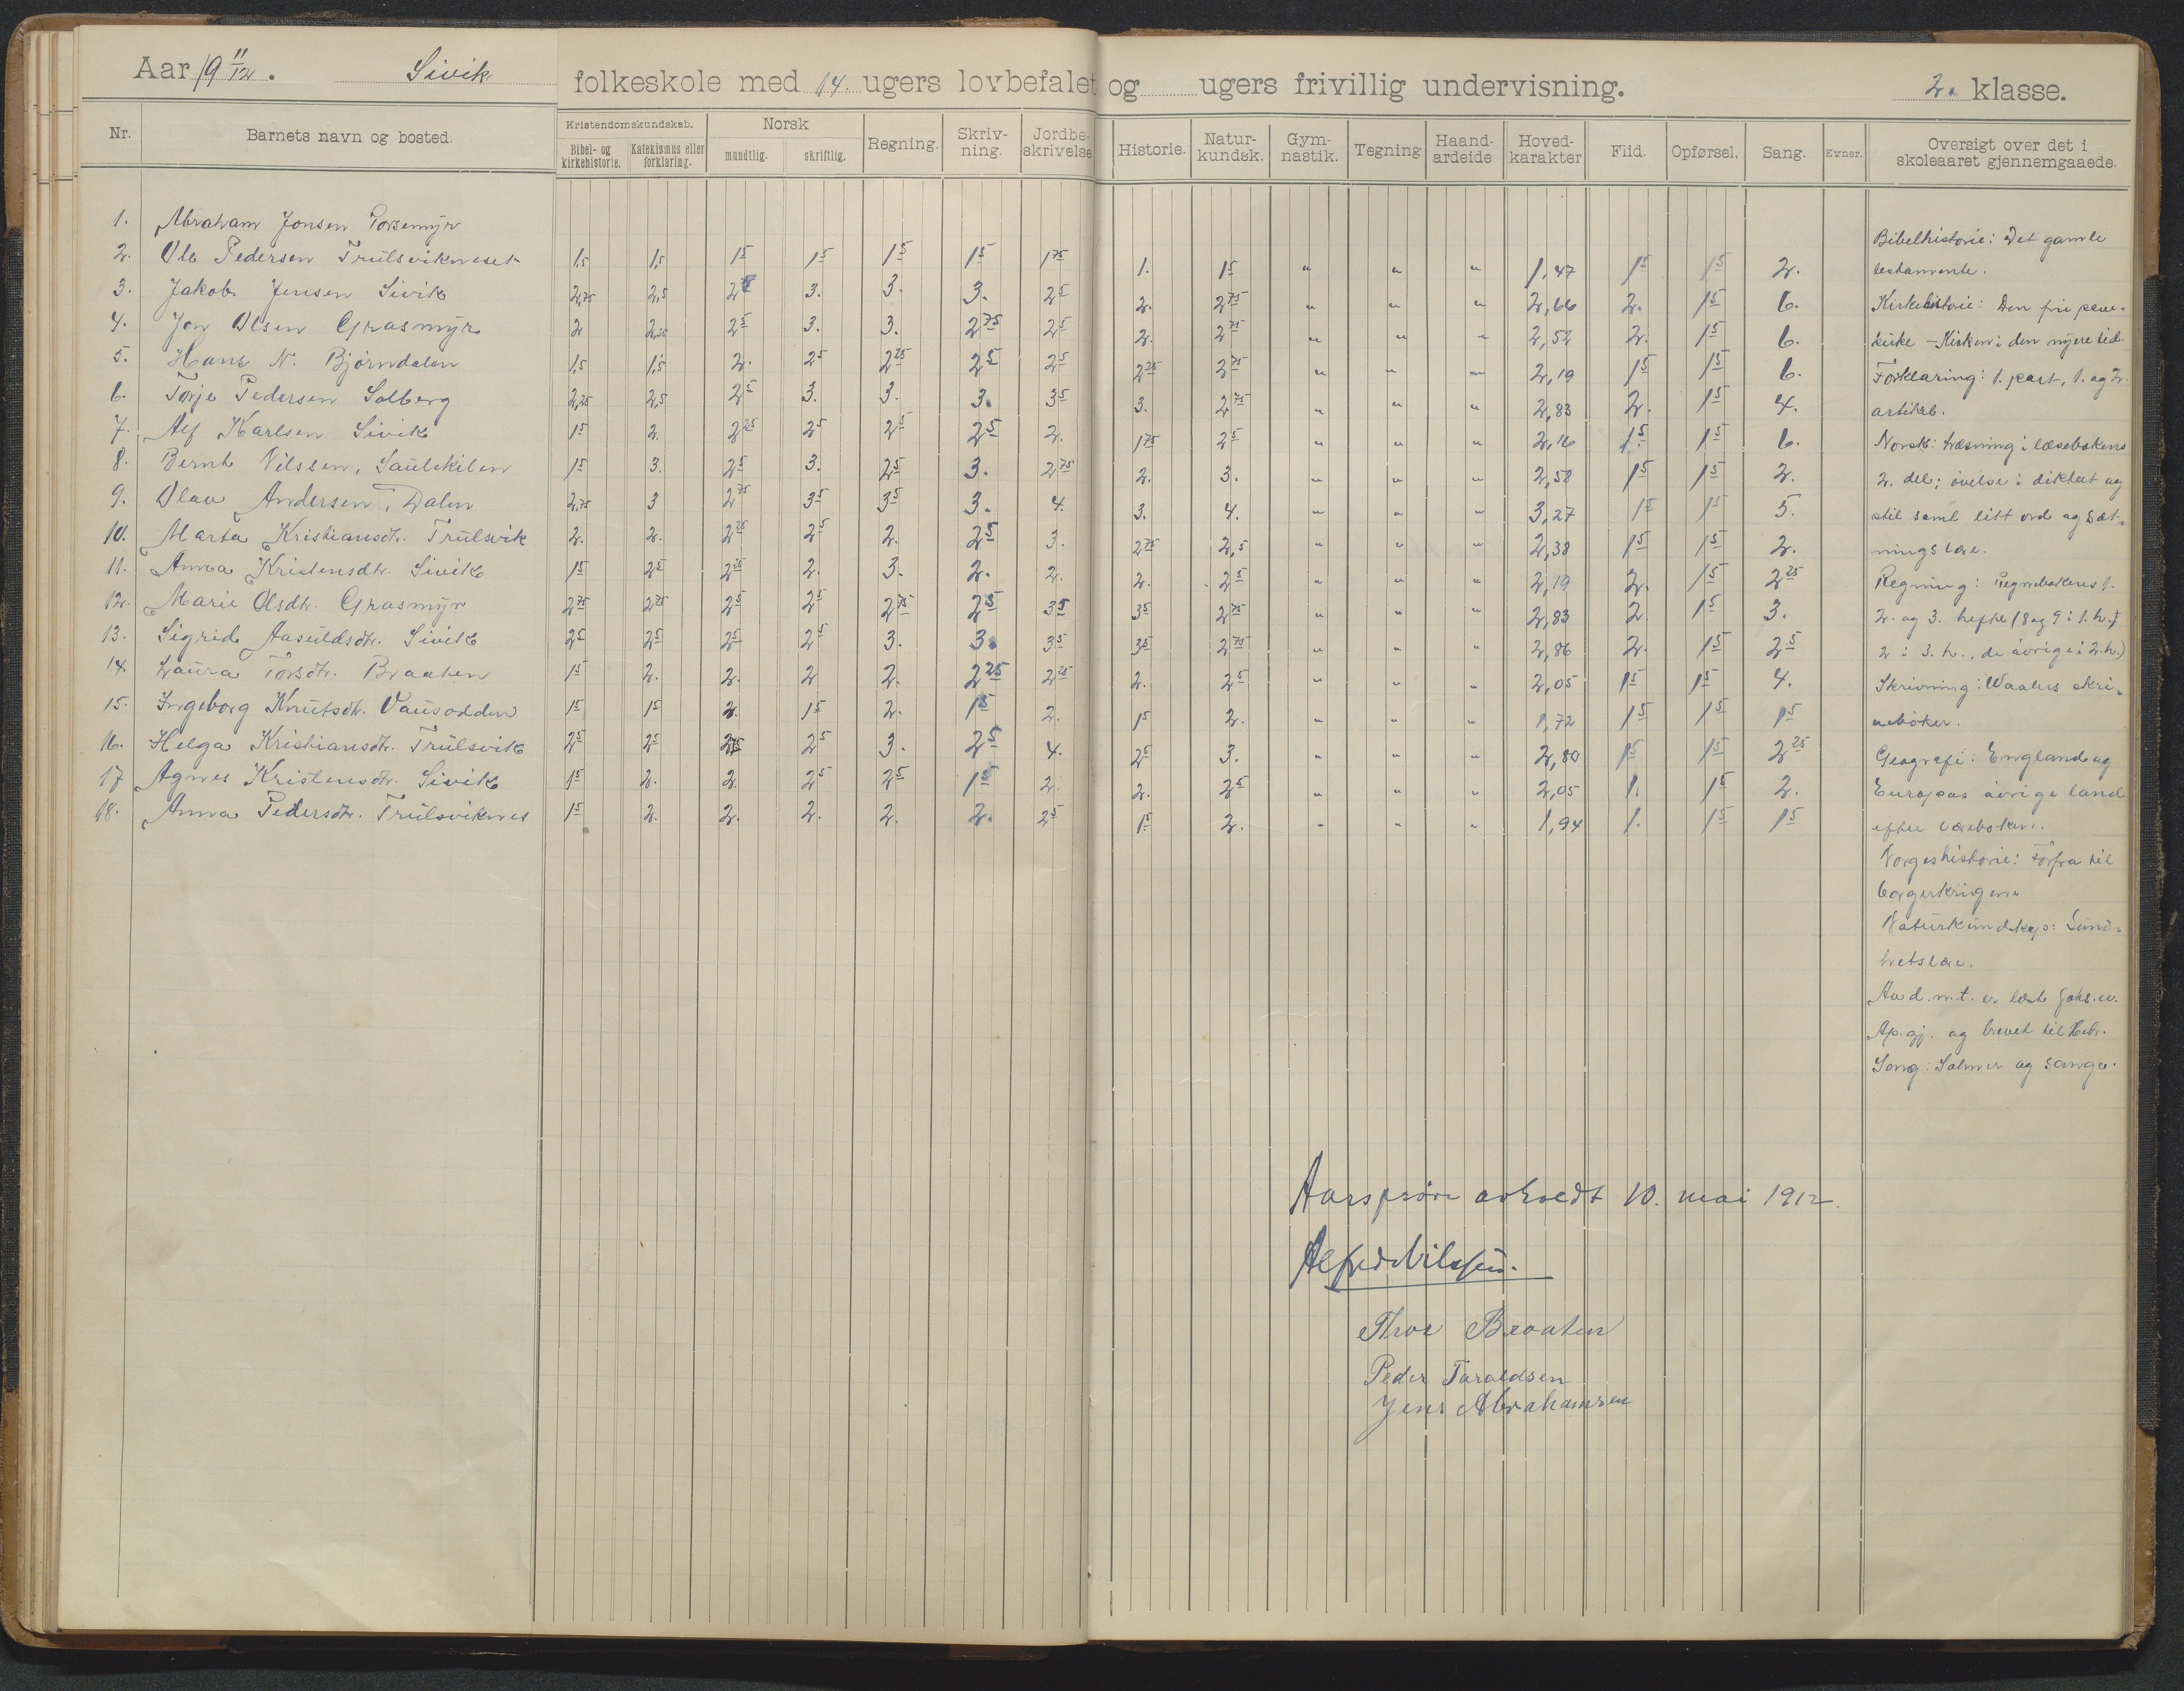 Aar 19 11/12. Sivik folkeskole med 14. ugers lovbefalet og ugers frivillig undervisning. 2. klasse.
Nr. Barnets navn og bosted. Kristendomskundskab. Bibel- og kirkehistorie. Katekismus eller forklaring. Norsk mundtlig. skriftlig. Regning. Skriv-ning. Jordbe-skrivelse Historie. Natur-kundsk. Gym-nastik. Tegning Haand-arbeide Hoved-karakter Flid. Opførsel. Sang. Evner. Oversigt over det i skoleaaret gjennemgaaede.
1. Abraham Jonsen Torsemyr
2. Ole Pedersen Trulsvikneset 1,5 1,5 1 5 1 5 1 5 1 5 1 75 1. 1 5 " " " 1,47 1 5 1 5 2.
3. Jakob Jensen Sivik 2,75 2,5 2 3. 3. 3. 2 5 2. 2 75 " " " 2,66 2. 1 5 6.
4. Jon Olsen Grasmyr 2 2,25 2 5 3. 3. 2 75 2 5 2. 2 75 " " " 2,52 2. 1 5 6.
5. Hans N. Bjørndalen 1,5 1,5 2. 2 5 2 25 2 5 2 5 2 25 2 75 " " " 2,19 1 5 1 5 6.
6. Torje Pedersen Solberg 2,25 2,5 2 5 3. 3. 3. 3 5 3. 2 75 " " " 2,83 2. 1 5 4.
7. Alf Karlsen Sivik 1 5 2. 2 25 2 5 2 5 2 5 2. 1 75 2 5 " " " 2,16 1 5 1 5 6.
8. Bernt Nilssen, Saulekilen 1 5 3. 2 5 3. 2 5 3. 2 75 2. 3. " " " 2,58 1 5 1 5 2.
9. Olav Andersen, Dalen 2,75 3 2 75 3 5 3 5 3. 4. 3. 4. " " " 3,27 1 5 1 5 5.
10. Marta Kristiansdtr. Trulsvik 2. 2. 2 25 2 5 2. 2 5 3. 2 75 2,5 " " " 2,38 1 5 1 5 2.
11. Anna Kristensdtr. Sivik 1 5 2 5 2 25 2. 3. 2. 2. 2. 2 5 " " " 2,19 2. 1 5 2 25
12. Marie Olsdtr. Grasmyr 2 75 2 75 2 5 2 5 2 75 2 5 3 5 3 5 2 75 " " " 2,83 2. 1 5 3.
13. Sigrid Aasuldsdtr. Sivik 2 5 2 5 2 5 2 5 3. 3. 3 5 3 5 2 75 " " " 2,86 2. 1 5 2 5
14. Laura Torsdtr. Braaten 1 5 2. 2. 2 2. 2 25 2 25 2. 2 5 " " " 2,05 1 5 1 5 4.
15. Ingeborg Knutsdtr. Vausodden 1 5 1 5 2. 1 5 2. 1 5 2. 1 5 2. " " " 1,72 1 5 1 5 1 5
16. Helga Kristiansdtr. Trulsvik 2 5 2 5 2 75 2 5 3. 2 5 4. 2 5 3. " " " 2,80 1 5 1 5 2 25
17 Agnes Kristensdtr. Sivik 1 5 2. 2. 2 5 2 5 1 5 2. 2. 2 5 " " " 2,05 1. 1 5 2.
18. Anna Pedersdtr. Trulsviknes 1 5 2. 2. 2. 2. 2. 2 5 1 5 2. " " " 1,94 1. 1 5 1 5
Bibelhistorie: Det gamle
testamente.
Kirkehistorie: Den fri pave-
kirke - Kirken i den nyere tid.
Forklaring: 1. part, 1. og 2.
artikel.
Norsk: Læsning i læsebokens
2. del; øvelse i diktat og
stil samt litt ord og sæt-
ningslære.
Regning: Regnebokens 1.
2. og 3. hefte (8 og 9 i 1. h.,
2 i 3. h., de øvrige i 2. h.)
Skrivning: Waalers skri-
vebøker.
Geografi: England og
Europas øvrige land
efter lærebøkene.
Norgeshistorie: Forfra til
borgerkrigene
Naturkundskap: Sund-
hetslære.
Av d. n. t. er læst Joh. ev.
Ap. gj. og brevet til Hebr.
Sang: Salmer og sange.
Aarsprøve avholdt 10. mai 1912.
Alfred Nilssen.
Thor Braaten
Peder Taraldsen
Jens Abrahamsen